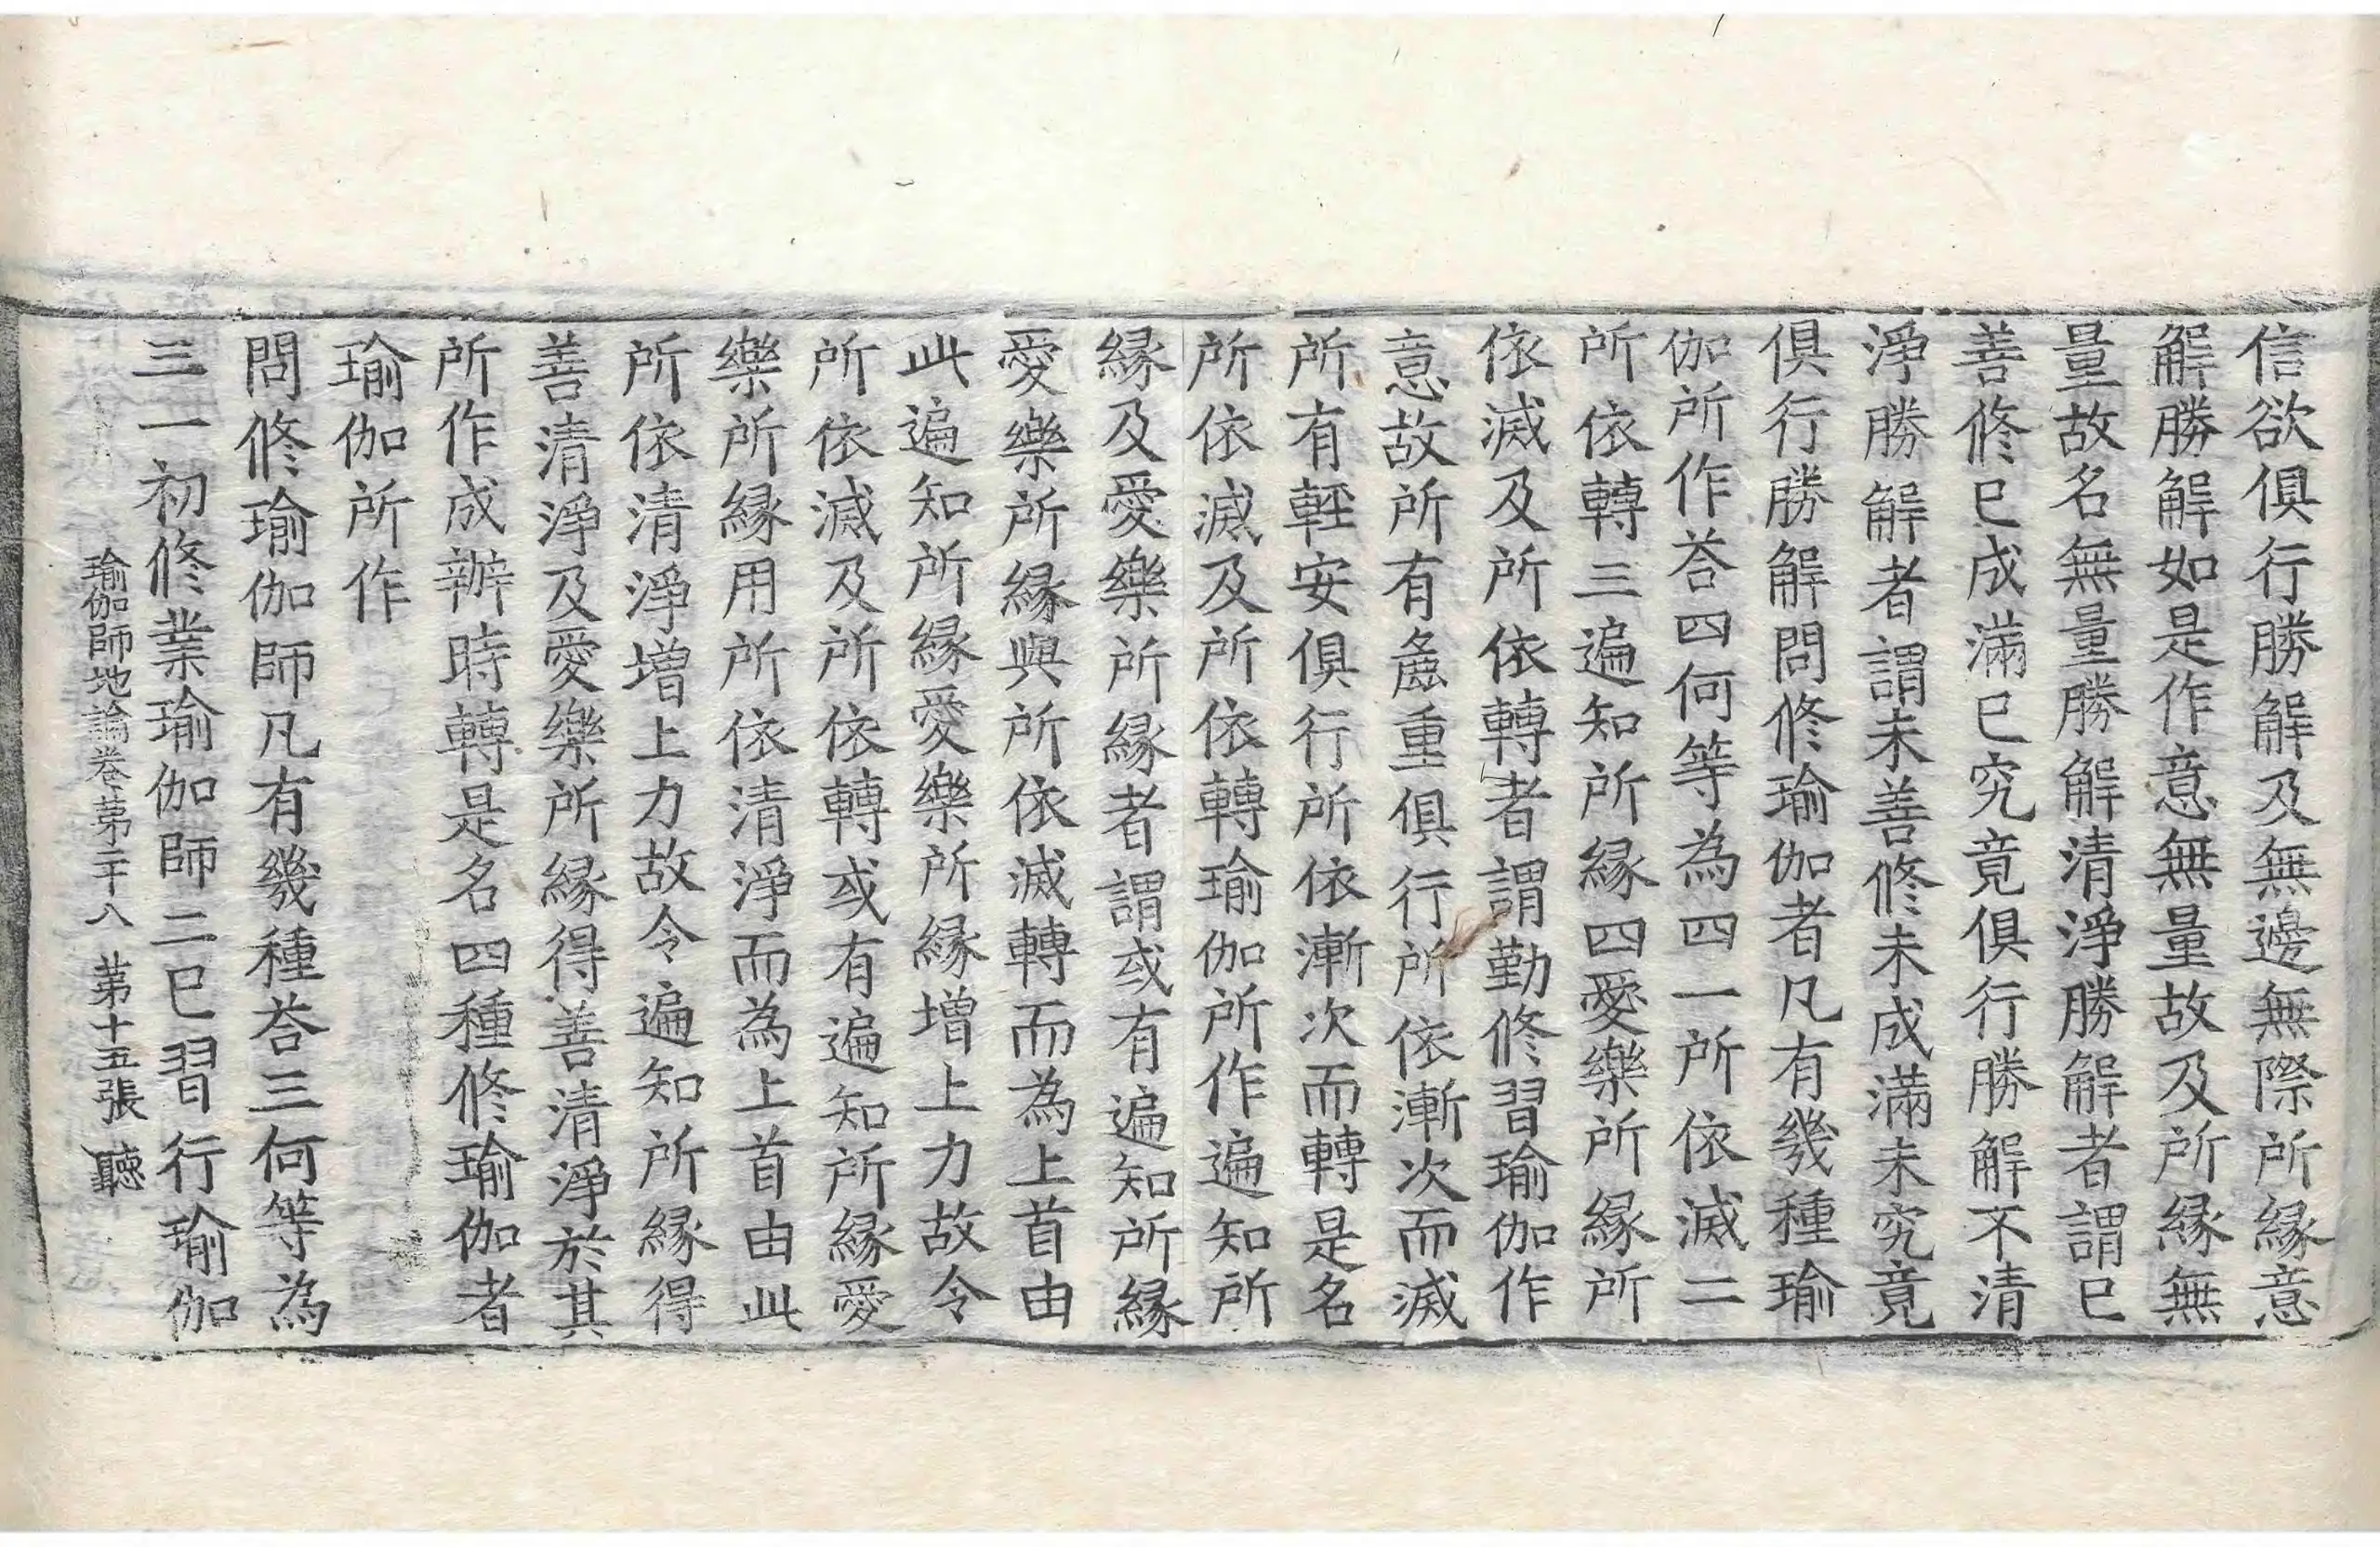 信欲俱行勝解及無邊無際所緣意
解勝解如是作意無量故及所緣無
量故名無量勝解清淨勝解者謂已
善修已成滿已究竟俱行勝解不清
淨勝解者謂未善修未成滿未究竟
俱行勝解問修瑜伽者凡有幾種瑜
伽所作荅四何等為四一所依滅二
所依轉三遍知所緣四愛樂所緣所
依滅及所依轉者謂勤修習瑜伽作
意故所有麁重俱行所依漸次而滅
所有輕安俱行所依漸次而轉是名
所依滅及所依轉瑜伽所作遍知所
緣及愛樂所緣者謂或有遍知所緣
愛樂所緣與所依滅轉而為上首由
此遍知所緣愛樂所緣增上力故令
所依滅及所依轉或有遍知所緣愛
樂所緣用所依清淨而為上首由此
所依清淨增上力故令遍知所緣得
善清淨及愛樂所緣得善清淨於其
所作成辦時轉是名四種修瑜伽者
瑜伽所作
問修瑜伽師凡有幾種荅三何等為
三一初修業瑜伽師二已習行瑜伽
瑜伽師地論卷第二十八 第十五張 聽